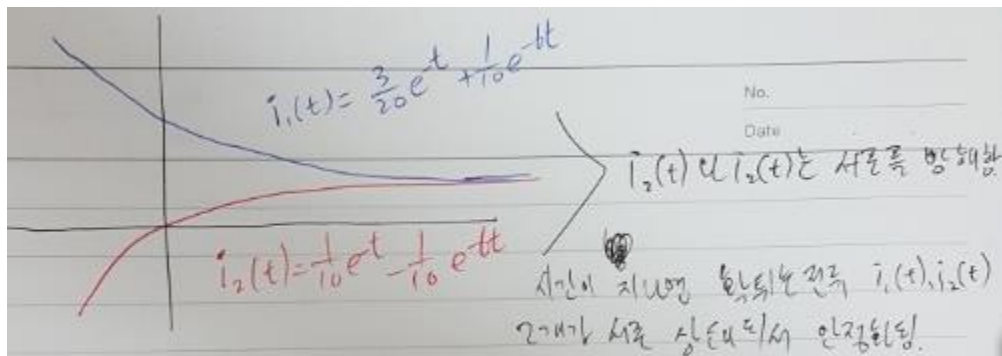 i₁(t) = 3/20 e^-t + 1/10 e^-6t
No.
Date
i₂(t) 와 i₂(t)는 서로를 방해함
i₂(t) = 1/10 e^-t - 1/10 e^-6t
시간이 지나면 전류 i₁(t), i₂(t)
2개가 서로 상쇄되서 안정화됨.